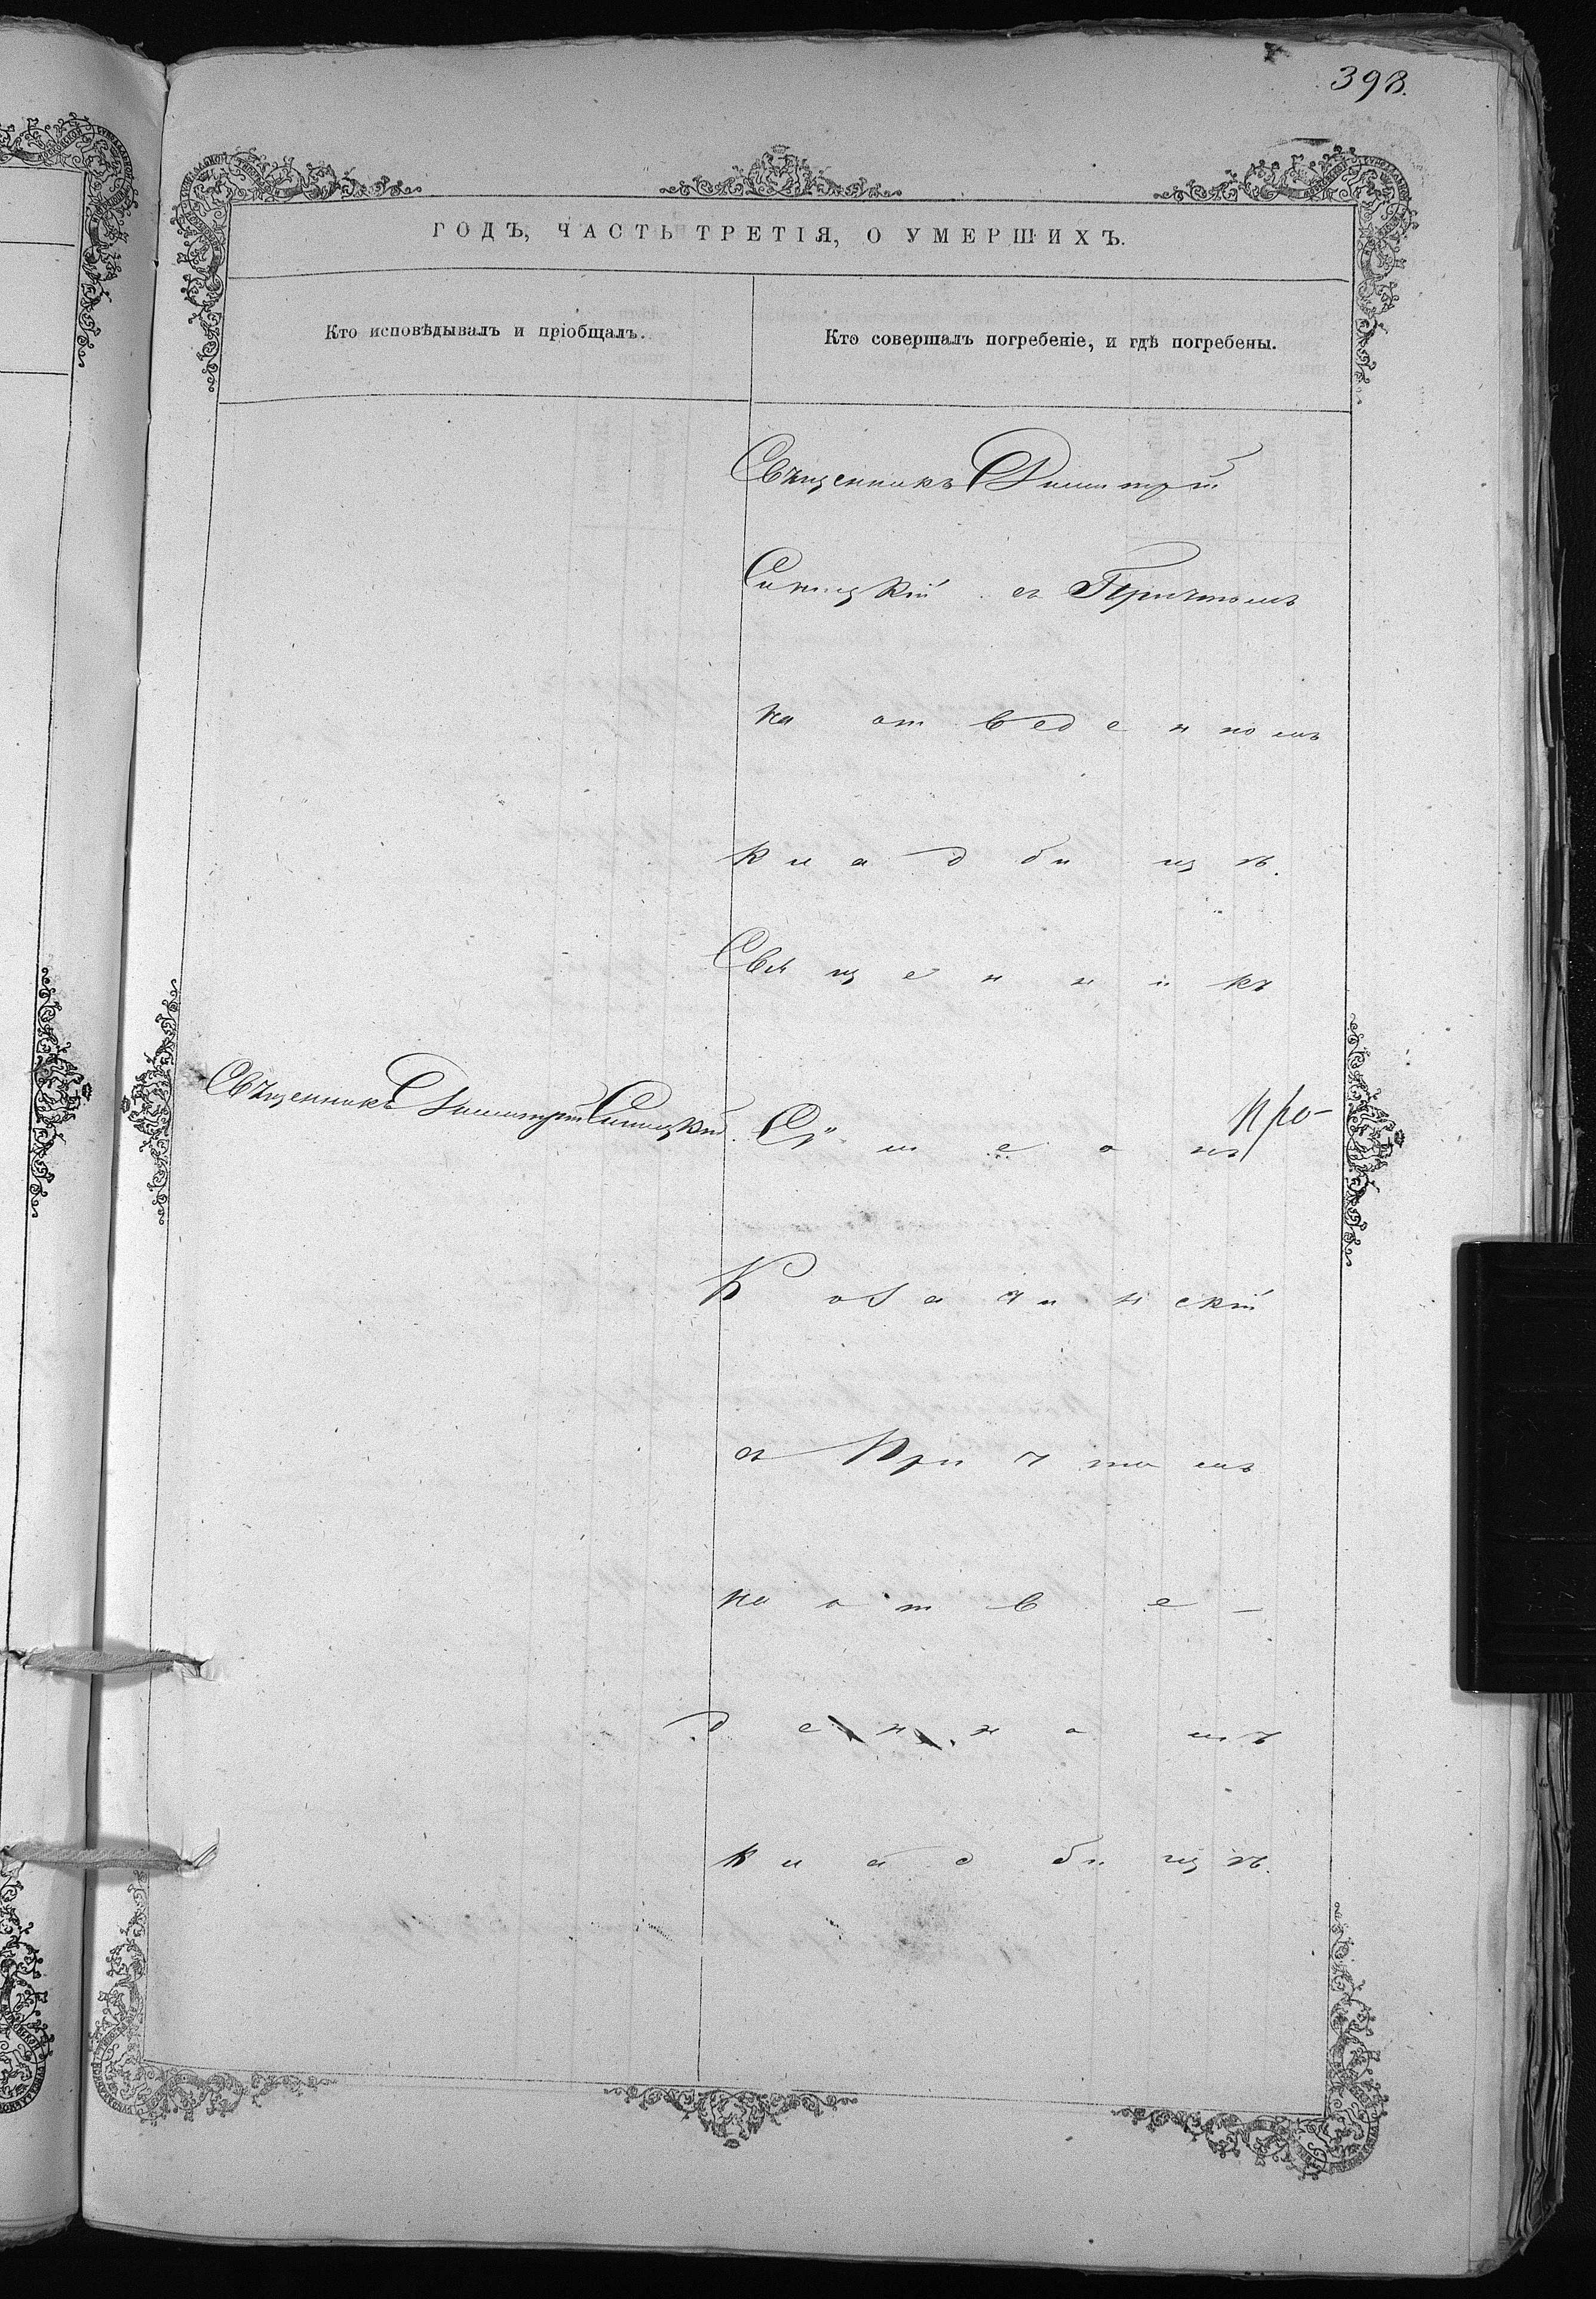 398.
ГОДЪ, ЧАСТЬ ТРЕТІЯ, О УМЕРШИХЪ.
Кто исповѣдывалъ и пріобщалъ.
Кто совершалъ погребеніе, и гдѣ погребены.
Священникъ Димитрій
Синицкій съ Причтомъ
на отведенномъ
кладбищѣ.
Священникъ
Священникъ Димитрій Синицкій.
Сѵмеонъ Про-
Козачинскій
съ Причтомъ
на отве-
денномъ
кладбищѣ.